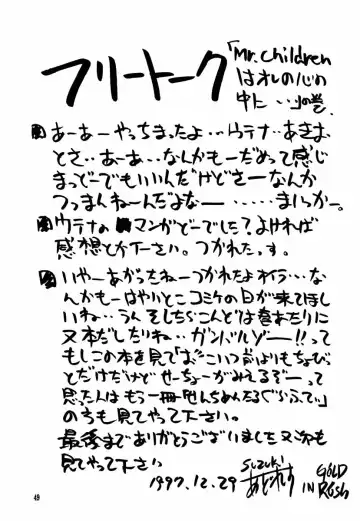 フリートーク
「Mr.Children
はオレの心の
中に・・」の巻.
あーあーやっちまったよ・・ウテナ・・あきま
とさ・・あーあ・・なんかもーだめって感じ
まっどーでもいいんだけどさーなんか
つっまんねーんだよなー・・・・・まいっかー.
ウテナのマンガどーでした?よければ
感想とか下さい。つかれたっす。
いやーあがっちゃねーつかれたよオイラ・・・な
んかもーはやいとこコミケの日が来てほし
いね・・うん そしたらこんどは春あたりに
又本だしたりね・・ガンバルゾー!!って
もしこの本を見て「おっこいつ前よりもちょびっ
とだけだけどせーちょーがみえるぞー」って
思った人はもう一冊
のちも見てやって下さい。
最後までありがとうございました又次も
見てやって下さい
1997.12.29
SUZUKI
GOLD
IN RUSH
49